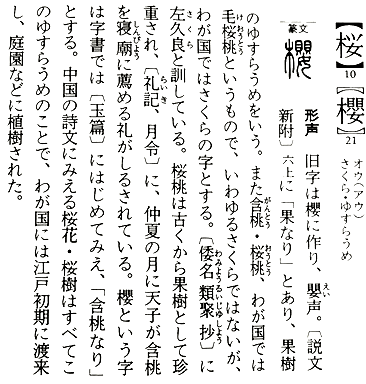 【桜】10【櫻】21
オウ(アウ)
さくら・ゆすらうめ
篆文
形声 旧字は櫻に作り、嬰声。〔説文
新附〕六上に「果なり」とあり、果樹
のゆすらうめをいう。また含桃・桜桃、わが国では
毛桜桃というもので、いわゆるさくらではないが、
わが国ではさくらの字とする。〔倭名類聚抄〕に
左久良と訓している。桜桃は古くから果樹として珍
重され、〔礼記、月令〕に、仲夏の月に天子が含桃
を寝廟に薦める礼がしるされている。櫻という字
は字書では〔玉篇〕にはじめてみえ、「含桃なり」
とする。中国の詩文にみえる桜花・桜樹はすべてこ
のゆすらうめのことで、わが国には江戸初期に渡来
し、庭園などに植樹された。